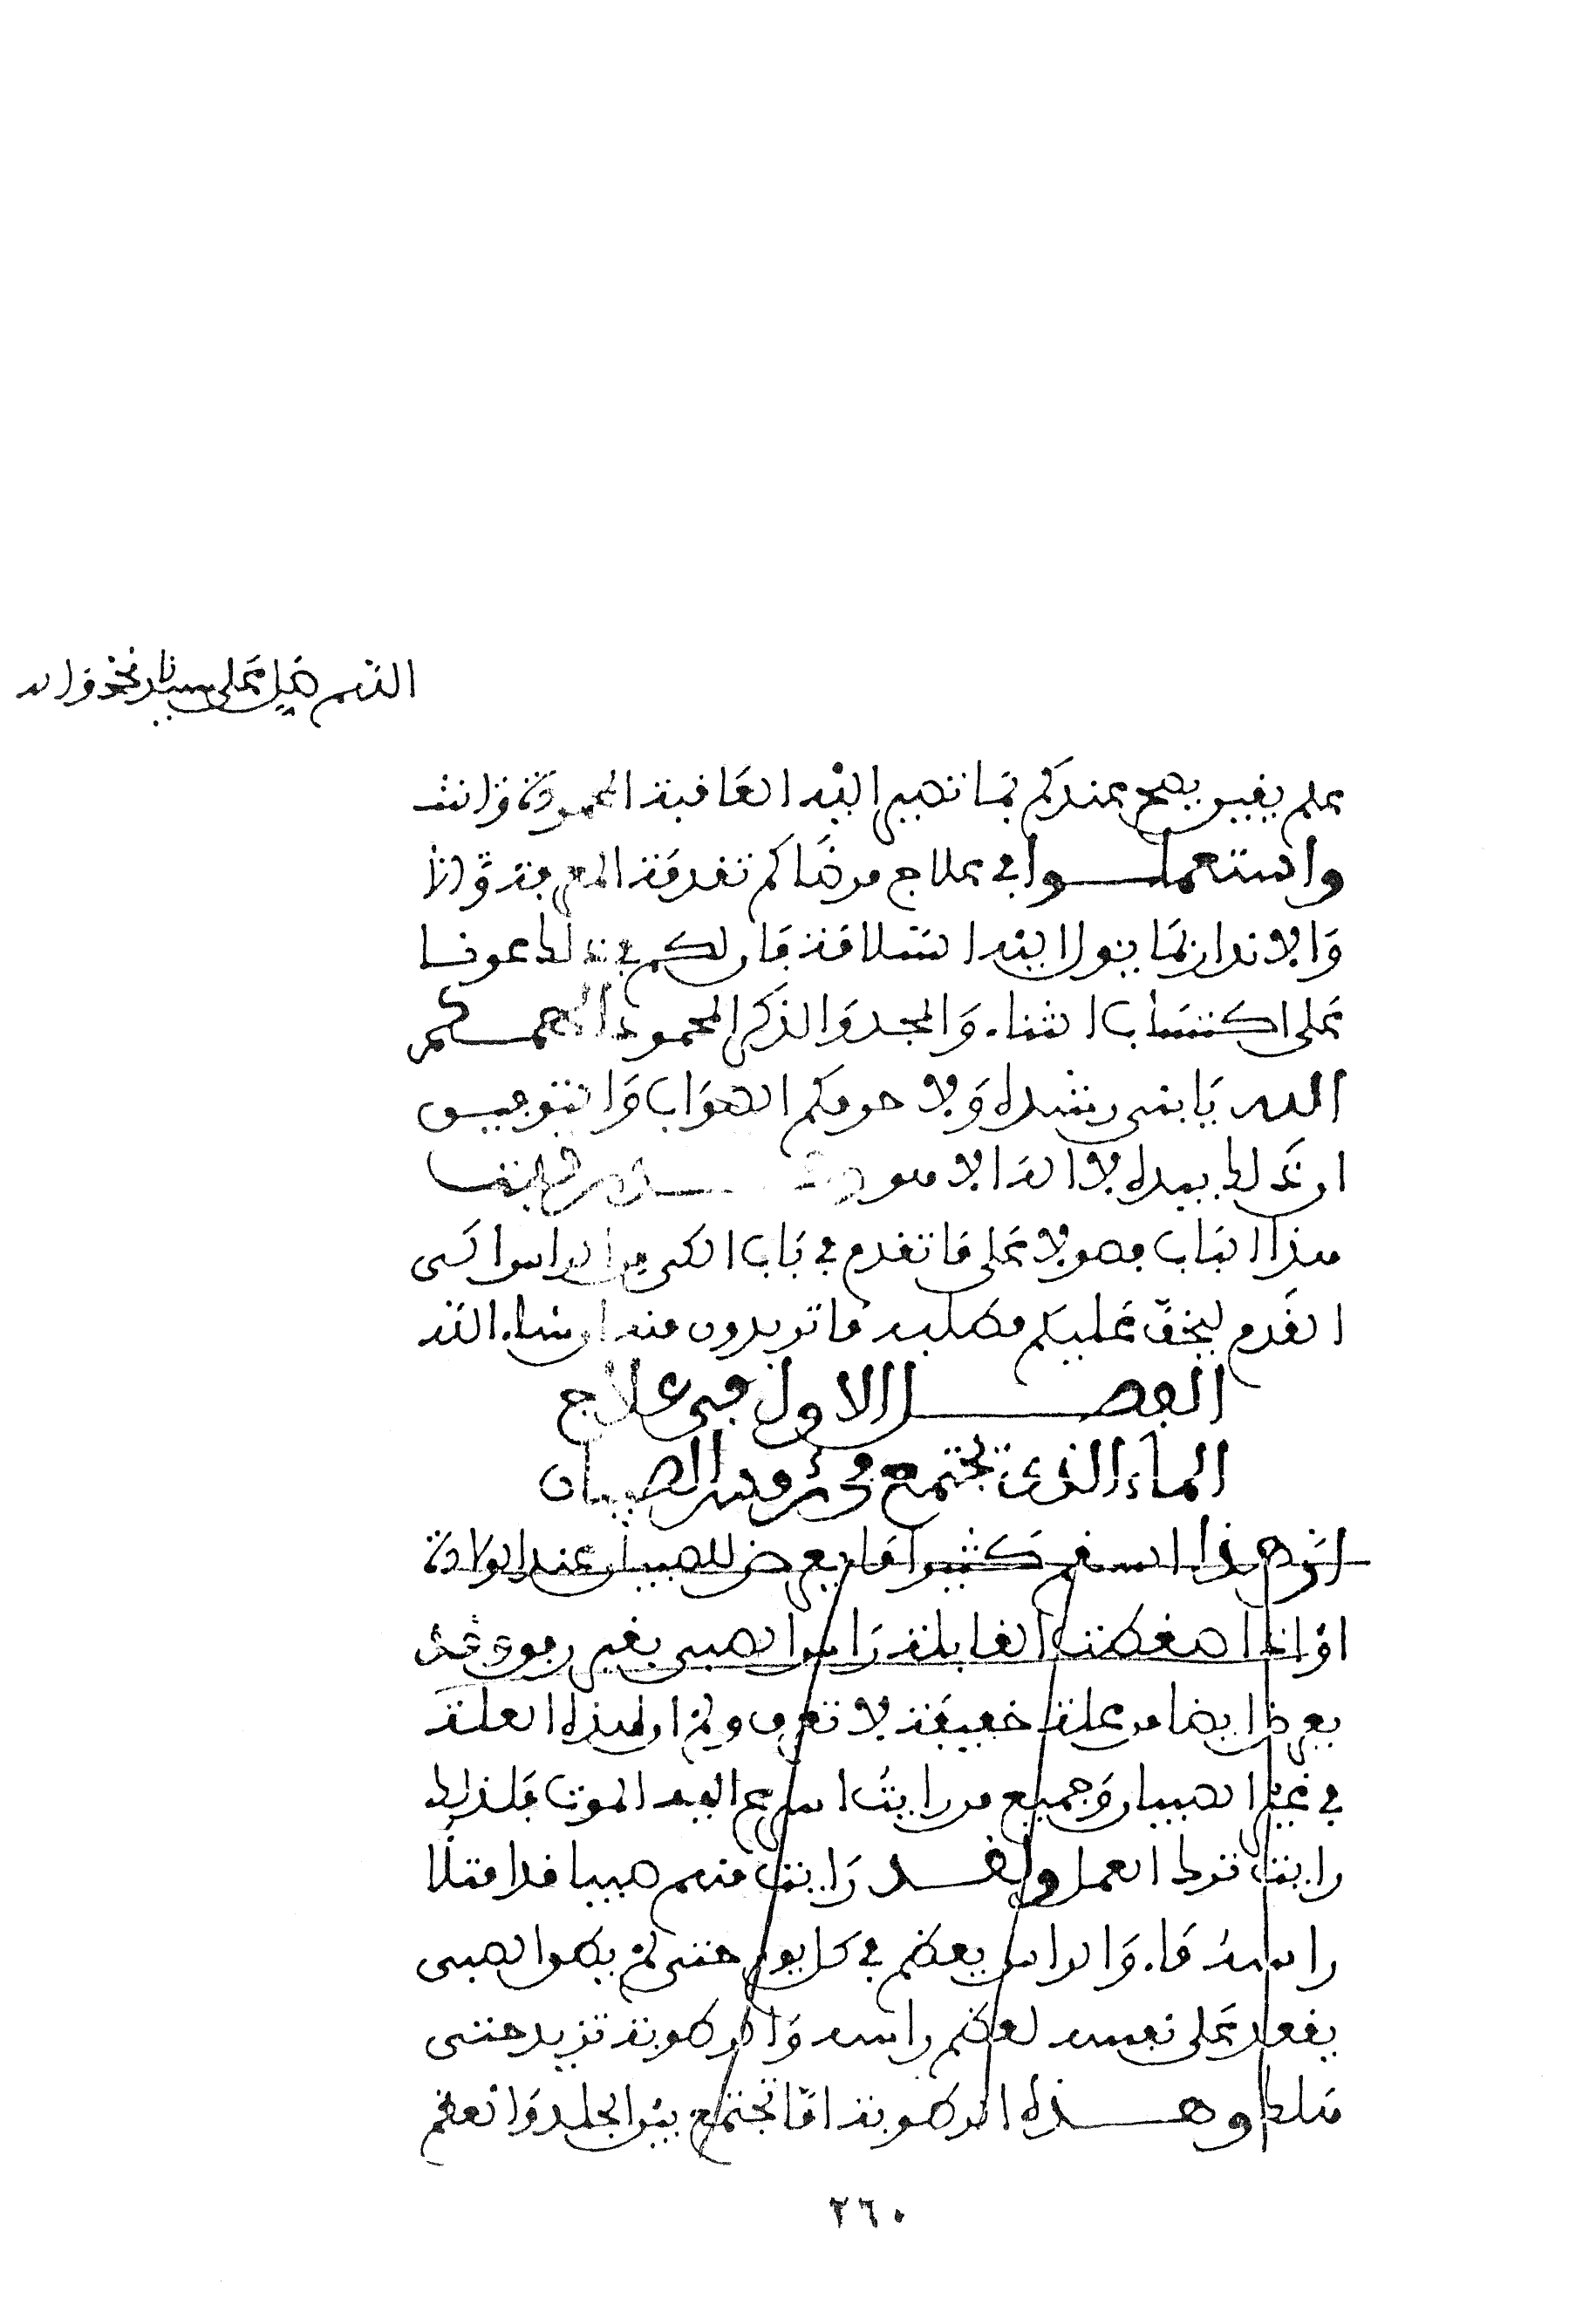 اللهم صل على سيدنا محمد واله
علم يقين يصح عندكم بما تصير اليه العاقبة المحمودة وانتم
واستعملوا في علاج مرضاكم تقدمة المعرفة
والانذار بما يول اليه السلامة فان لكم في ذلك عونا
على اكتساب الثناء والمجد والذكر المحمود الهمكم
الله يا بني رشده ولا حرمكم الصواب والتوفيق
ان ذلك بيده لا اله الا هو
هذا الباب فصولا على ما تقدم في باب الكي من الراس الى
القدم ليخف عليكم مطلب ما تريدون منه ان شاء الله
الفصل الاول في علاج
الماء الذي تجتمع في رؤوس الصبيان
ان هذا السقم كثيرا ما يعرض للصبيان عند الولادة
او اذا ضغطت القابلة راس الصبي بغير رفق وقد
يعرض ايضا من علة خفيفة لا تعرف ولم ار هذه العلة
في غير الصبيان وجميع من رايت اسرع اليه الموت فلذلك
رايت ترك العمل ولقد رايت منهم صبيا قد امتلا
راسه ماء والراس يعظم في كل يوم حتى لم يطق الصبي
يقعد على نفسه لعظم راسه والرطوبة تزيد حتى
هلك وهذه الرطوبة اما تجتمع بين الجلد والعظم
٢٦٠